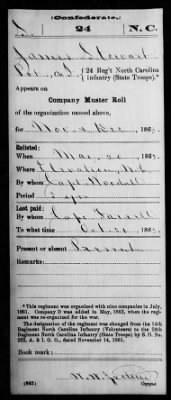 (Confederate.)
24 N. C.
James Stewart
Pvt., Co. I, 24 Reg't North Carolina
Infantry (State Troops).*
Appears on
Company Muster Roll
of the organization named above,
for Nov & Dec, 186
Enlisted:
When Mar 20, 186
Where
By whom Capt
Period 3 yrs
Last paid:
By whom Capt
To what time Oct 31, 186
Present or absent Present
Remarks:
* This regiment was organized with nine companies in July,
1861. Company D was added in May, 1862, when the regi-
ment was re-organized for the war.
The designation of the regiment was changed from the 14th
Regiment North Carolina Infantry (Volunteers) to the 24th
Regiment North Carolina Infantry (State Troops) by S. O. No.
222, A. & I. G. O., dated November 14, 1861.
Book mark:
(642)
Copyist.